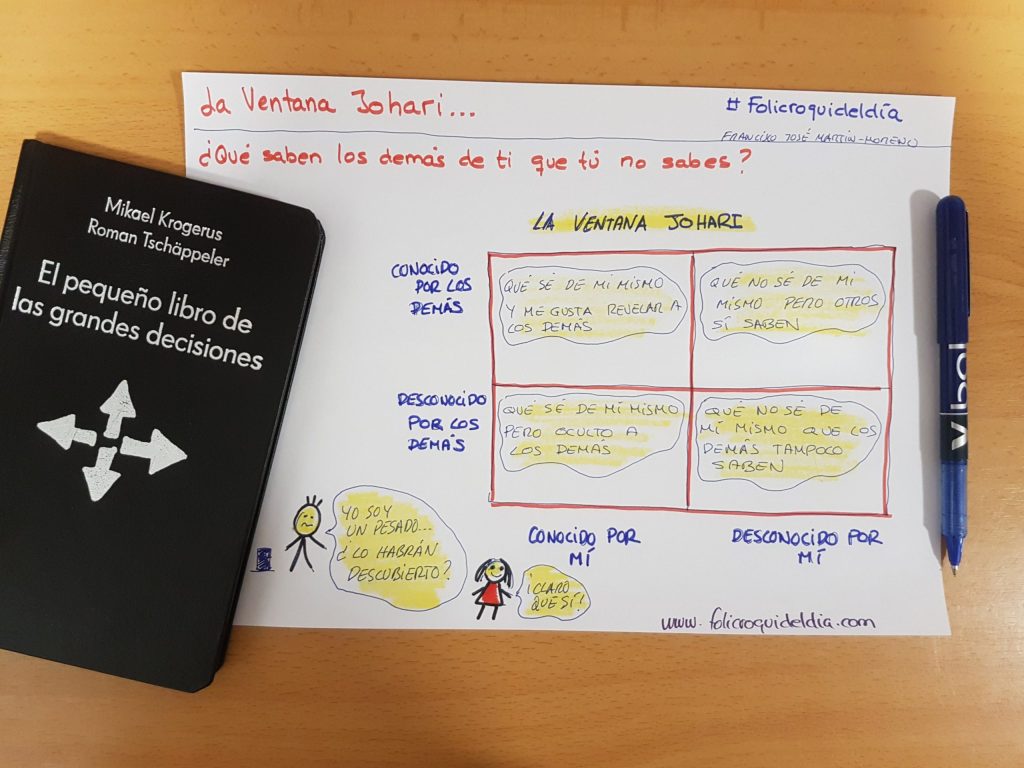 La Ventana Johari...
# Folicroquideldía
FRANCISCO JOSÉ MARTÍN-MORENO
¿Qué saben los demás de ti que tú no sabes?
Mikael Krogerus
Roman Tschäppeler
El pequeño libro de
las grandes decisiones
LA VENTANA JOHARI
CONOCIDO
POR LOS
DEMÁS
QUÉ SÉ DE MÍ MISMO
Y ME GUSTA REVELAR A
LOS DEMÁS
QUÉ NO SÉ DE MI
MISMO PERO OTROS
SÍ SABEN
DESCONOCIDO
POR LOS
DEMÁS
QUÉ SÉ DE MÍ MISMO
PERO OCULTO A
LOS DEMÁS
QUÉ NO SÉ DE
MÍ MISMO QUE LOS
DEMÁS TAMPOCO
SABEN
CONOCIDO POR
MÍ
DESCONOCIDO POR
MÍ
YO SOY
UN PESADO...
¿LO HABRÁN
DESCUBIERTO?
¡CLARO
QUE SÍ!
www.folicroquideldia.com